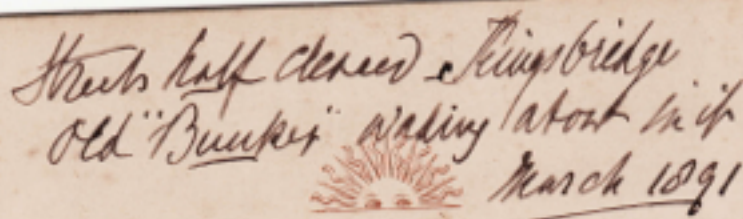 Streets half cleared. Kingsbridge
Old "Bunker" wading about in it
March 1891